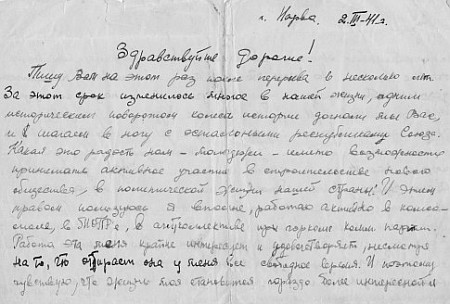 г. Нарва. 2.III-41г.
Здравствуйте дорогие!
Пишу Вам на этот раз после перерыва в несколько лет.
За этот срок изменилось многое в нашей жизни, одним
историческим поворотом колеса истории догнали мы Вас,
и шагаем в ногу с остальными республиками Союза.
Какая это радость нам - молодежи - иметь возможность
принимать активное участие в строительстве нового
общества, в политической жизни нашей страны! И этим
правом пользуюсь я вполне, работаю активно в комсо-
моле, в МОПРе, в агитколлективе при горкоме компарт.
Работа эта меня крайне интересует и удовлетворяет, несмотря
на то, что отбирает она у меня все свободное время. И поэтому
чувствую, что жизнь моя становится гораздо более интересной и